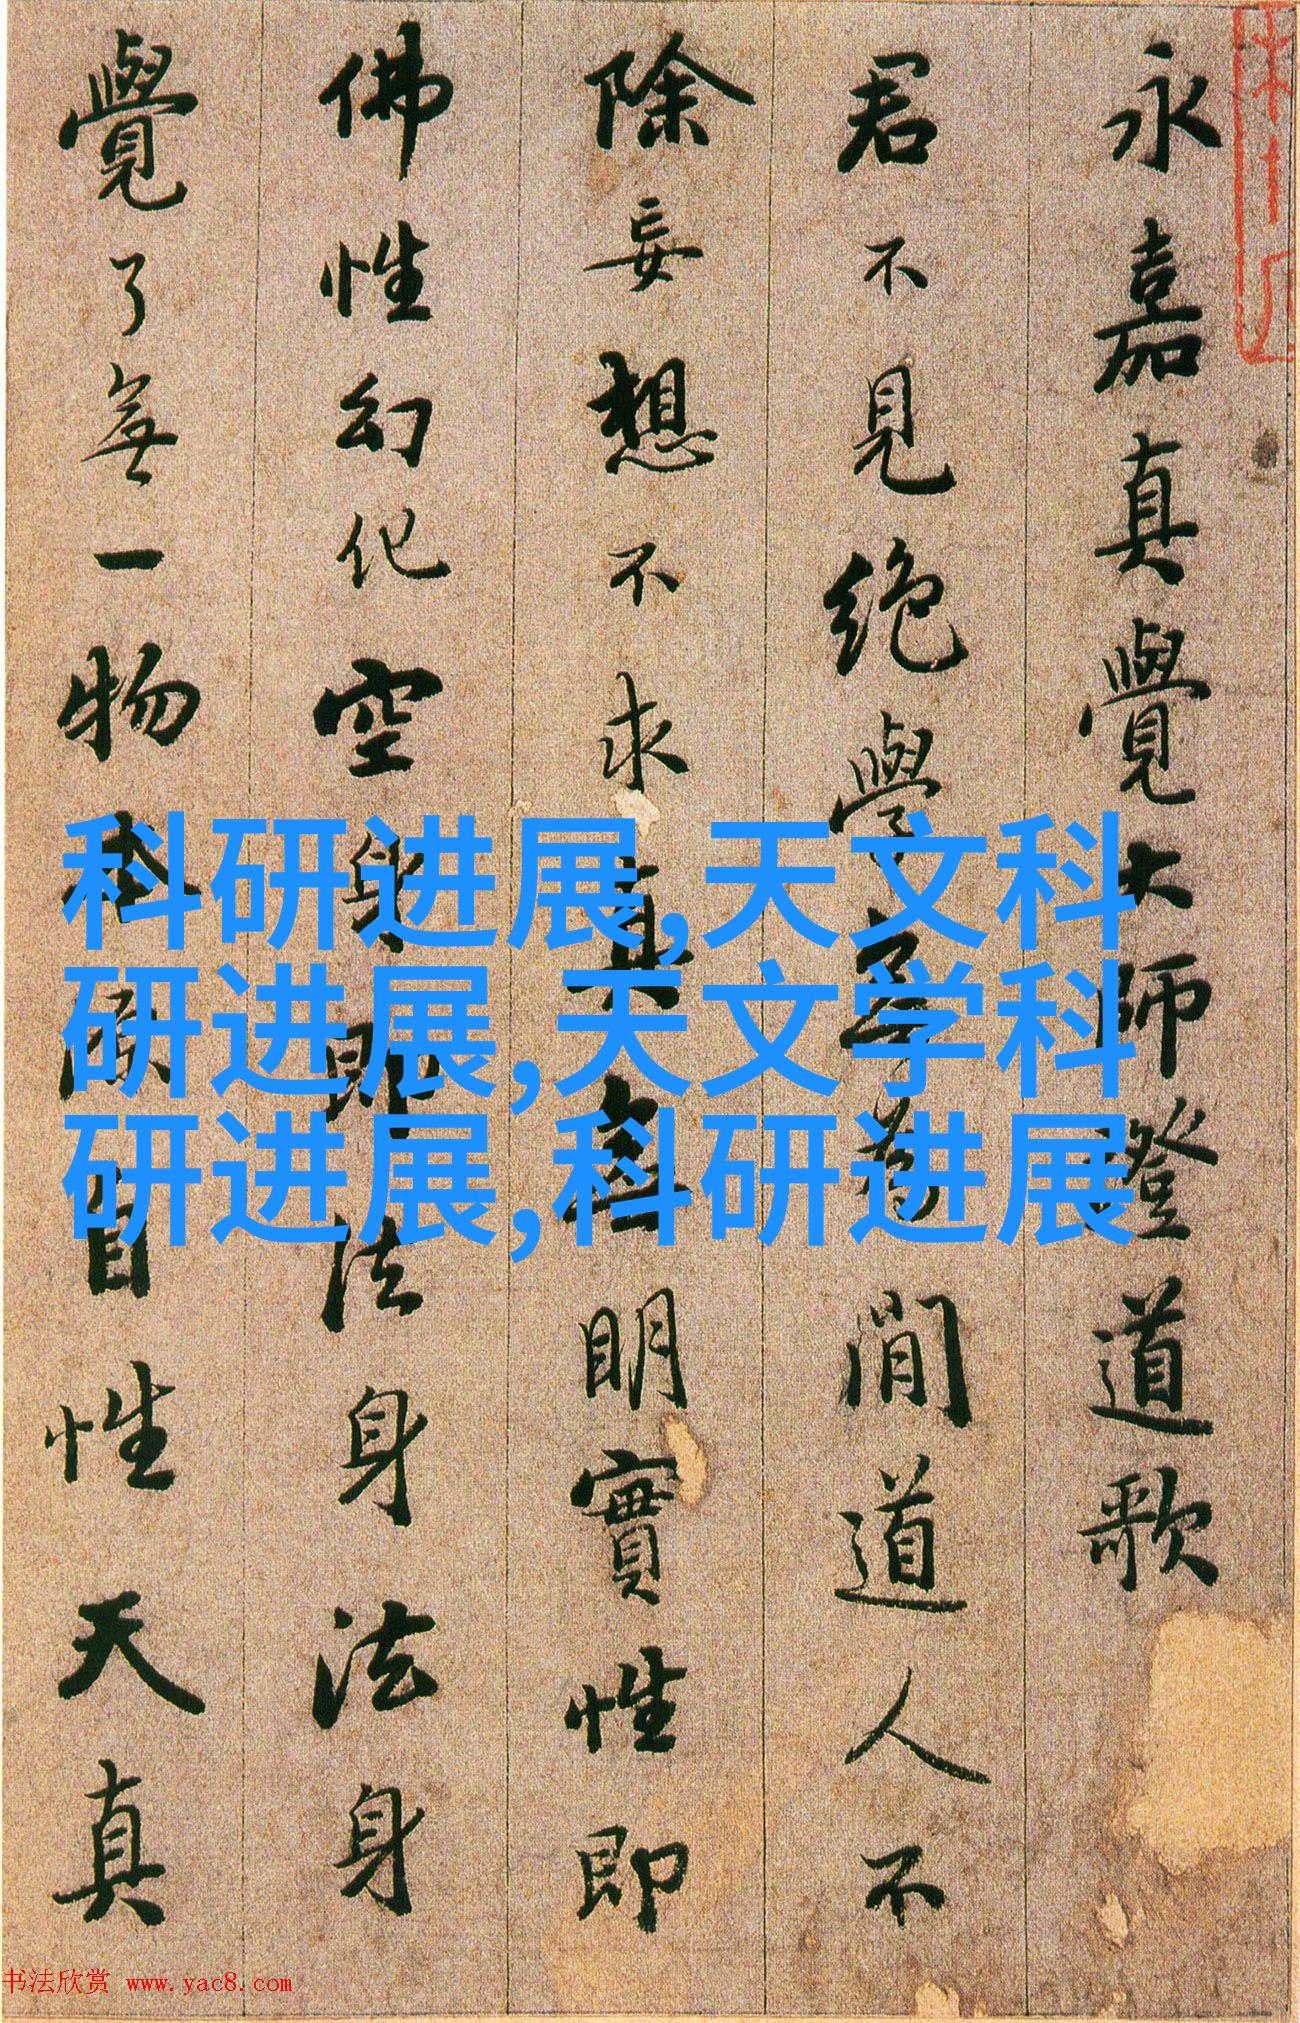 永嘉真覺大師證道歌
君不見絕學無為閒道人不
除妄想不求真無明實性即
佛性幻化空身即法身法身
覺了無一物本源自性天真
科研进展,天文科
研进展,天文学科
研进展,科研进展
书法欣赏 www.yac8.com